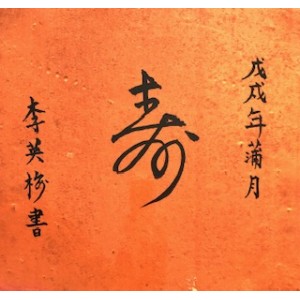 戊戌年蒲月
寿
李英梅書